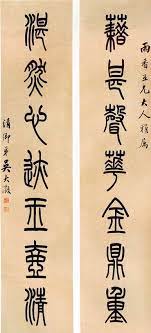 雨香五兄大人雅屬
藉甚聲華金鼎重
湛然心迹玉壺清
清卿弟吳大澂